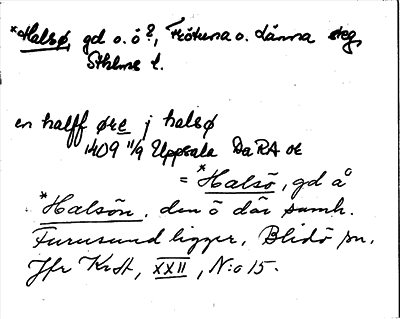 *Halsø, gd o. ö?, Frötuna o. Länna skg,
Sthlms l.
en halff øre j halsø
1409 11/9 Uppsala DaRA oe
= *Halsö, gd å
*Halsön, den ö där samh.
Furusund ligger, Blidö sn.
Jfr KrH, XXII, N:o 15.